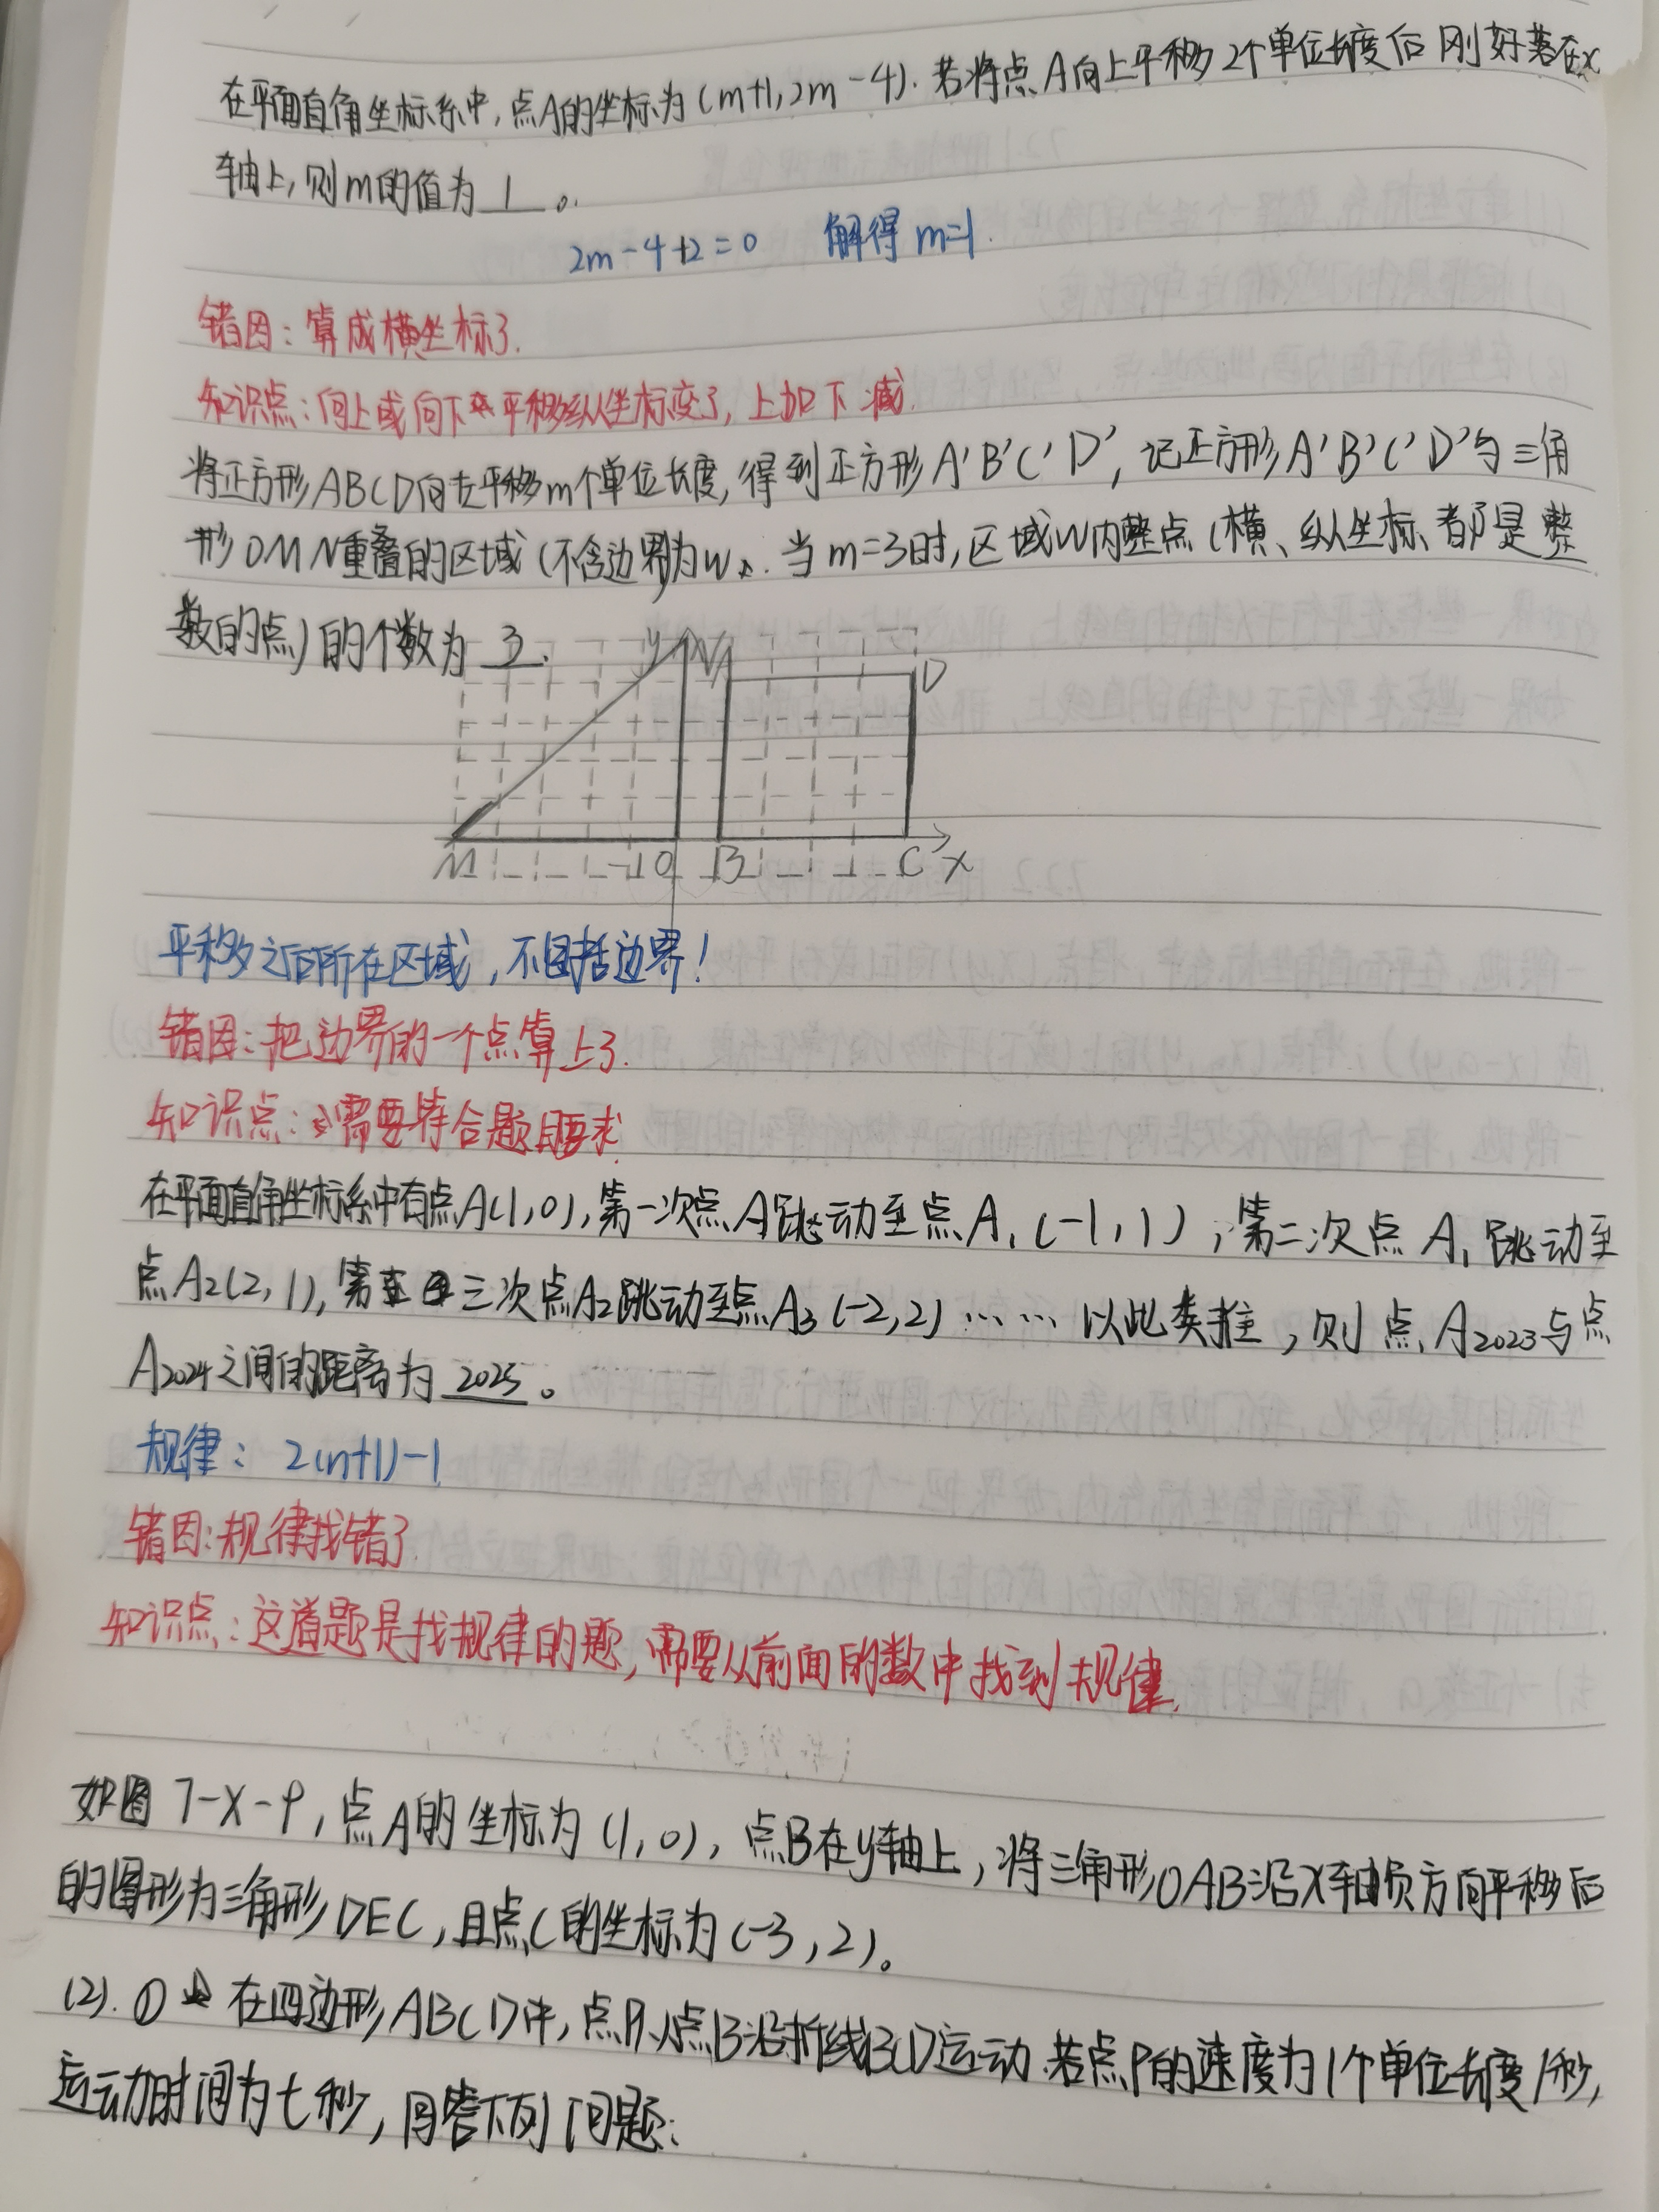 在平面直角坐标系中,点A的坐标为(m+1,2m-4).若将点A向上平移2个单位长度后刚好落在x
轴上,则m的值为 1 。
2m-4+2=0 解得m=1.
错因:算成横坐标了.
知识点:向上或向下平移纵坐标变了,上加下减.
将正方形ABCD向左平移m个单位长度,得到正方形A'B'C'D',记正方形A'B'C'D'与三角
形OMN重叠的区域(不含边界)为W.当m=3时,区域W内整点(横、纵坐标都是整
数的点)的个数为 3.
y N A
D
M -1 O B C x
平移之后所在区域,不包括边界!
错因:把边界的一个点算上了.
知识点:需要符合题目要求.
在平面直角坐标系中有点A(1,0),第一次点A跳动至点A₁(-1,1),第二次点A₁跳动至
点A₂(2,1),第三次点A₂跳动至点A₃(-2,2)……以此类推,则点A2023与点
A2024之间的距离为 2025 。
规律: 2(n+1)-1
错因:规律找错了
知识点:这道题是找规律的题,需要从前面的数中找到规律.
如图7-X-9,点A的坐标为(1,0),点B在y轴上,将三角形OAB沿X轴负方向平移后
的图形为三角形DEC,且点C的坐标为(-3,2)。
(2).① 在四边形ABCD中,点P从点B沿折线BCD运动.若点P的速度为1个单位长度/秒,
运动时间为t秒,回答下列问题: